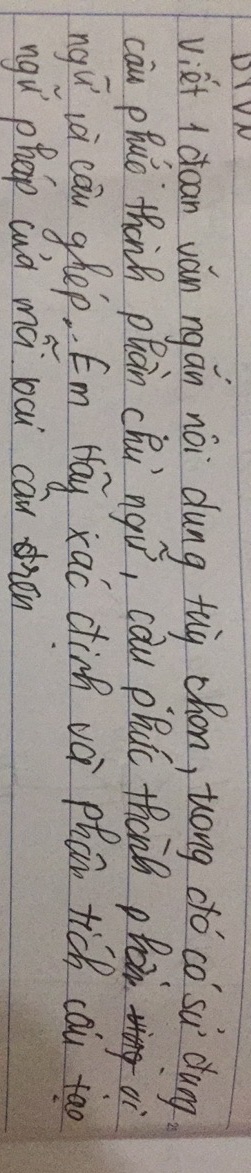 BTVN
Viết 1 đoan văn ngắn nôi dung tùy chon, trong đó có sử dụng
câu phức thành phần chủ ngữ, câu phức thành phần vị
ngữ và câu ghép. Em Hãy xác định và phân tích cấu tạo
ngữ pháp của mỗi loại câu trên